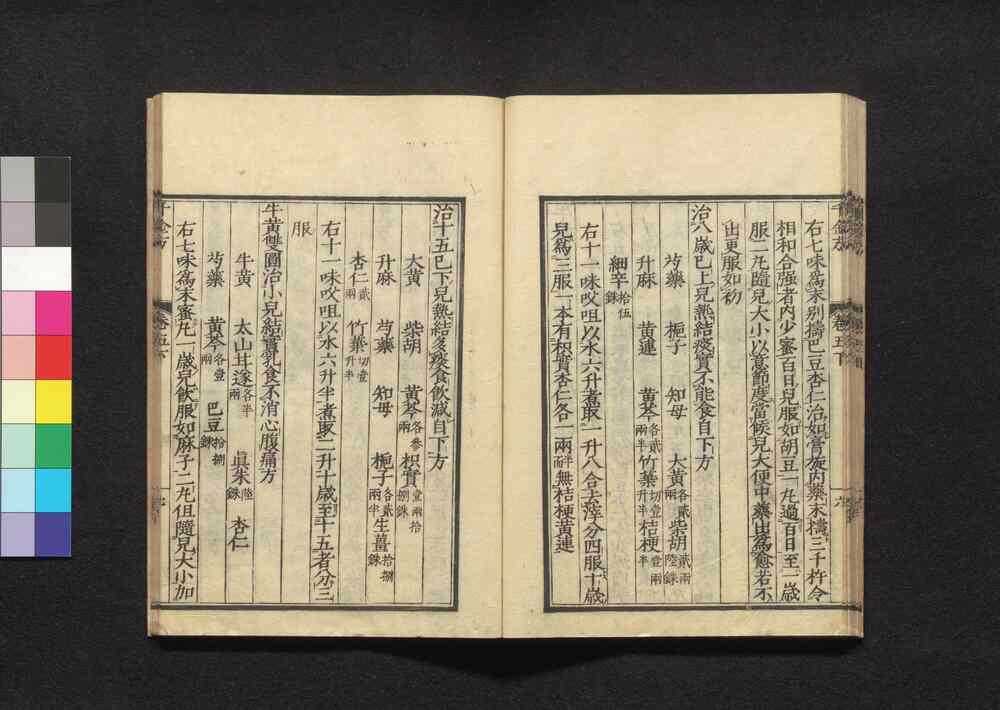 右七味為末别擣巴豆杏仁治如膏旋内藥末擣三千杵令
相和合强者内少蜜百日兒服如胡豆一丸過百日至一歳
服一丸隨兒大小以意節度當候兒大便中藥出為愈若不
出更服如初
治八歳已上兒熱結痰實不能食自下方
芍藥 梔子 知母 大黄各貳兩 柴胡貳兩陸銖
升麻 黄連 黄芩各貳兩半 竹葉切壹升半 桔梗壹兩半
細辛拾伍銖
右十一味㕮咀以水六升煮取一升八合去滓分四服十歳
兒為三服一本有枳實杏仁各一兩半而無桔梗黄連
千金方 卷五下 六
治十五已下兒熱結多痰食飲減自下方
大黄 柴胡 黄芩各叁兩 枳實壹兩拾捌銖
升麻 芍藥 知母 梔子各貳兩半 生薑拾捌銖
杏仁貳兩 竹葉切壹升半
右十一味㕮咀以水六升半煮取二升十歳至十五者分三
服
牛黄雙圓治小兒結實乳食不消心腹痛方
牛黄 太山甘遂各半兩 眞朱陸銖 杏仁
芍藥 黄芩各壹兩 巴豆拾捌銖
右七味為末蜜丸一歳兒飲服如麻子二丸但隨兒大小加